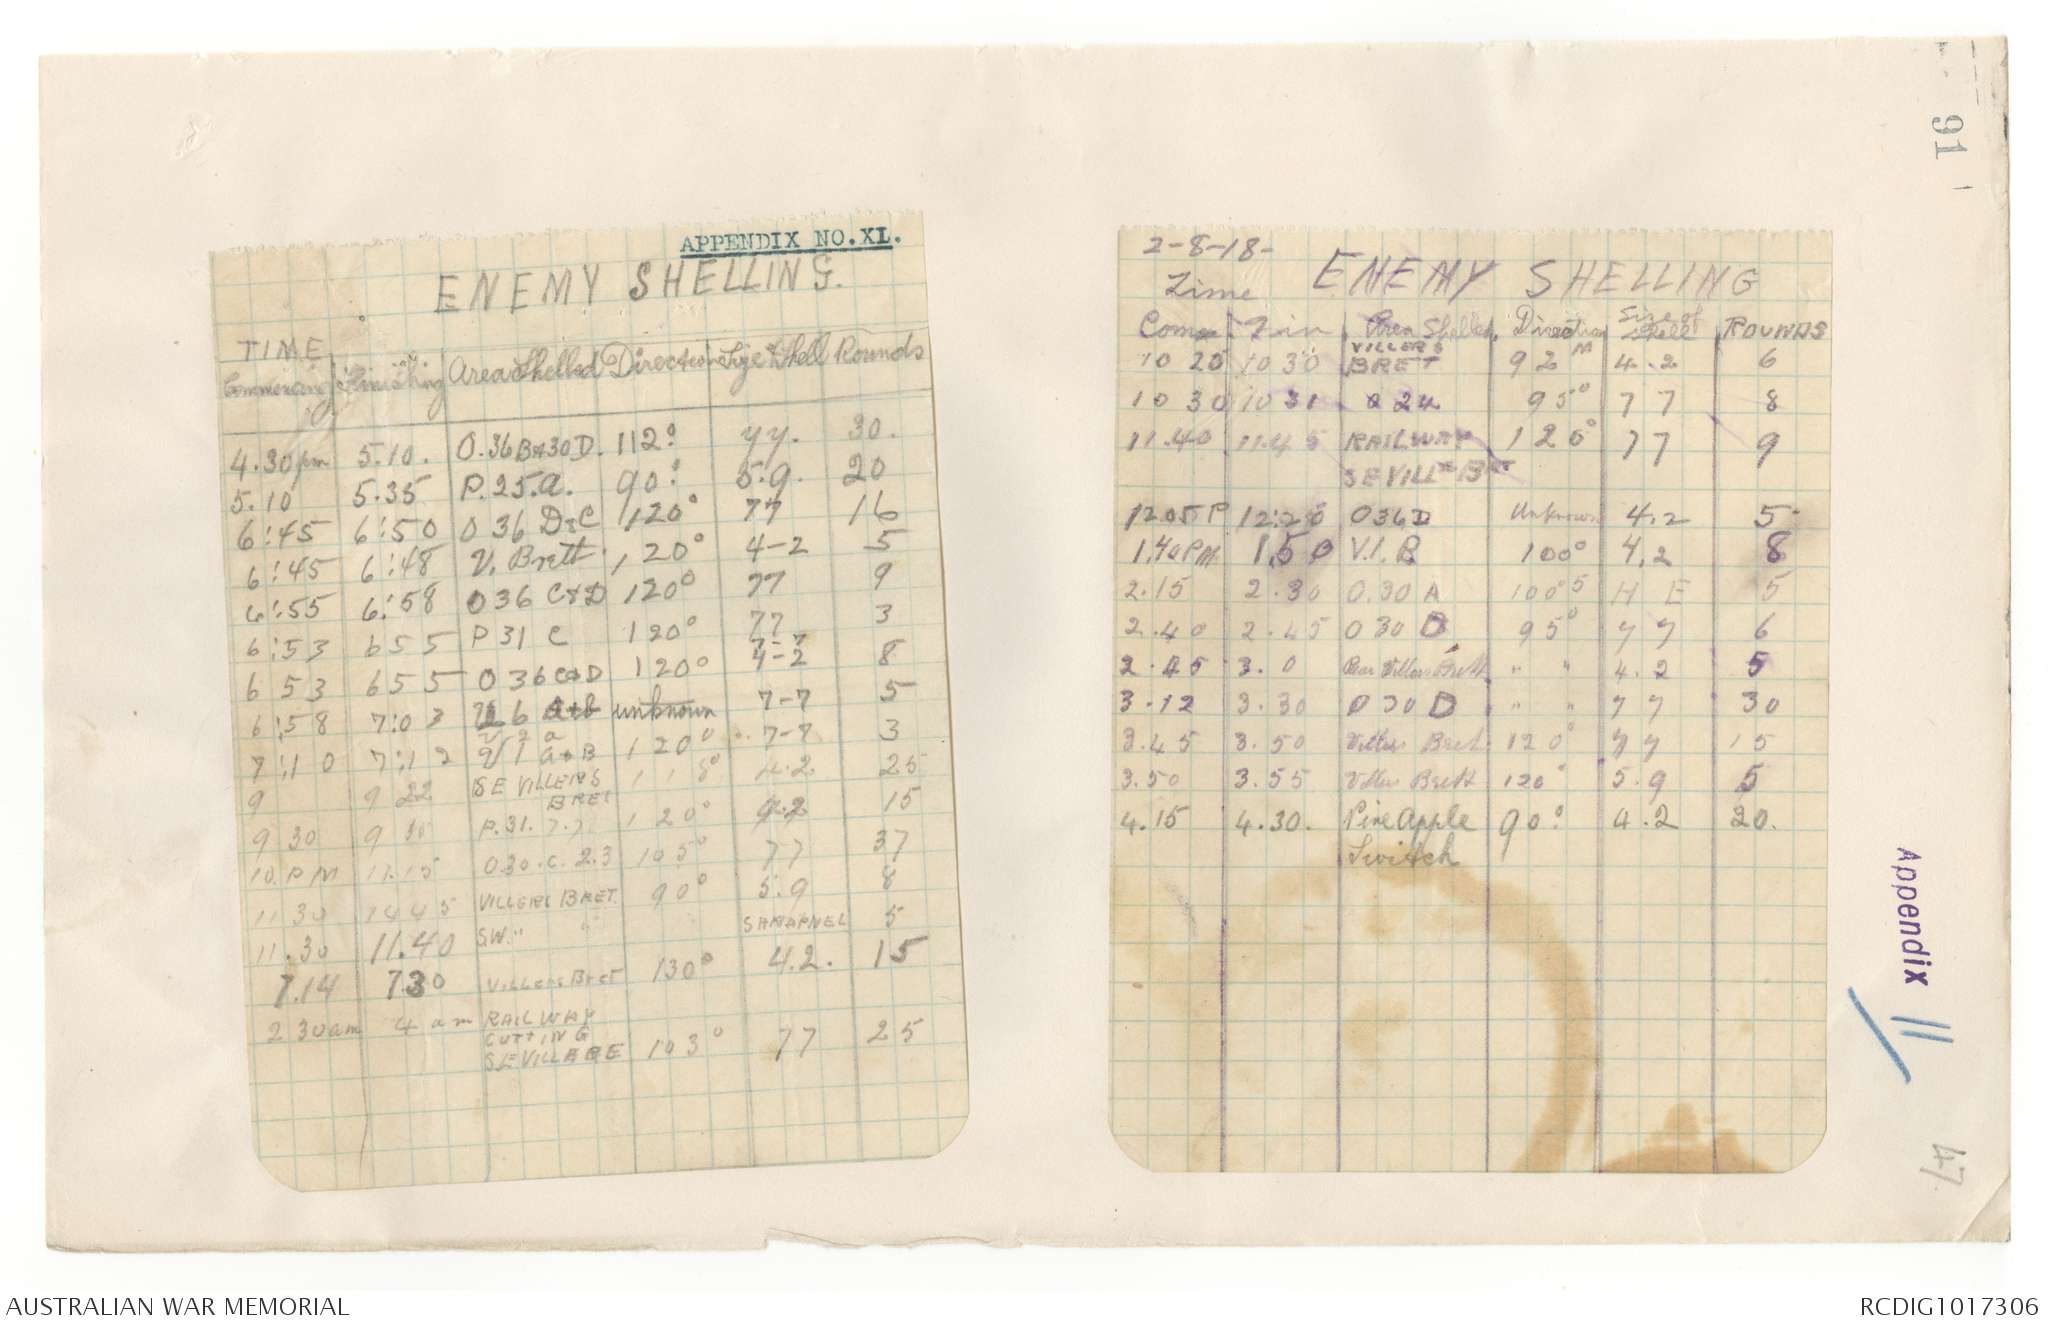 91
APPENDIX NO. XL.
ENEMY SHELLING.
TIME
Commencing Finishing Area Shelled Direction Size of Shell Rounds
4.30pm 5.10. O.36B&30D. 112° 77. 30.
5.10 5.35 P.25.a. 90° 5.9. 20
6:45 6:50 O 36 D&C 120° 77 16
6:45 6:48 V. Brett 120° 4-2 5
6:55 6:58 O36 C&D 120° 77 9
6:53 655 P 31 C 120° 77 3
6 53 655 O 36 C&D 120° 7-7 4-2 8
6:58 7:03 a&b unknown 7-7 5
7:10 7:12 V 1 a&B 120° 7-7 3
9 9 22 SE VILLERS BRET 118° 4.2 25
9 30 P.31. 120° 4.2 15
10.PM 11.15 O.30.C.2.3 105° 77 37
11 30 VILLERS BRET. 90° 5.9 8
11.30 11.40 S.W. " SHRAPNEL 5
7.14 7.30 VILLERS BRET 130° 4.2. 15
2 30am 4 am RAILWAY
CUTTING
SE VILLERS 103° 77 25
2-8-18-
Time ENEMY SHELLING
Com Fin Area Shelled Direction Size of Shell ROUNDS
10 25 10 30 VILLERS BRET 92 M 4.2 6
10 30 10 31 O 24 95° 77 8
11.40 11.45 RAILWAY 120° 77 9
SE VILLE BRET
12.05 P 12:20 O36D Unknown 4.2 5
1.40PM 1.50 V.1.B 100° 4.2 8
2.15 2.30 O.30 A 100° H E 5
2.40 2.45 O 30 D 95° 77 6
2.45 3.0 Rear Villers Brett " " 4.2 5
3.12 3.30 O 30 D " " 77 30
3.45 3.50 Villers Brett 120° 77 15
3.50 3.55 Villers Brett 120° 5.9 5
4.15 4.30. Pine Apple 90° 4.2 20.
Switch
Appendix 11
47
AUSTRALIAN WAR MEMORIAL
RCDIG1017306